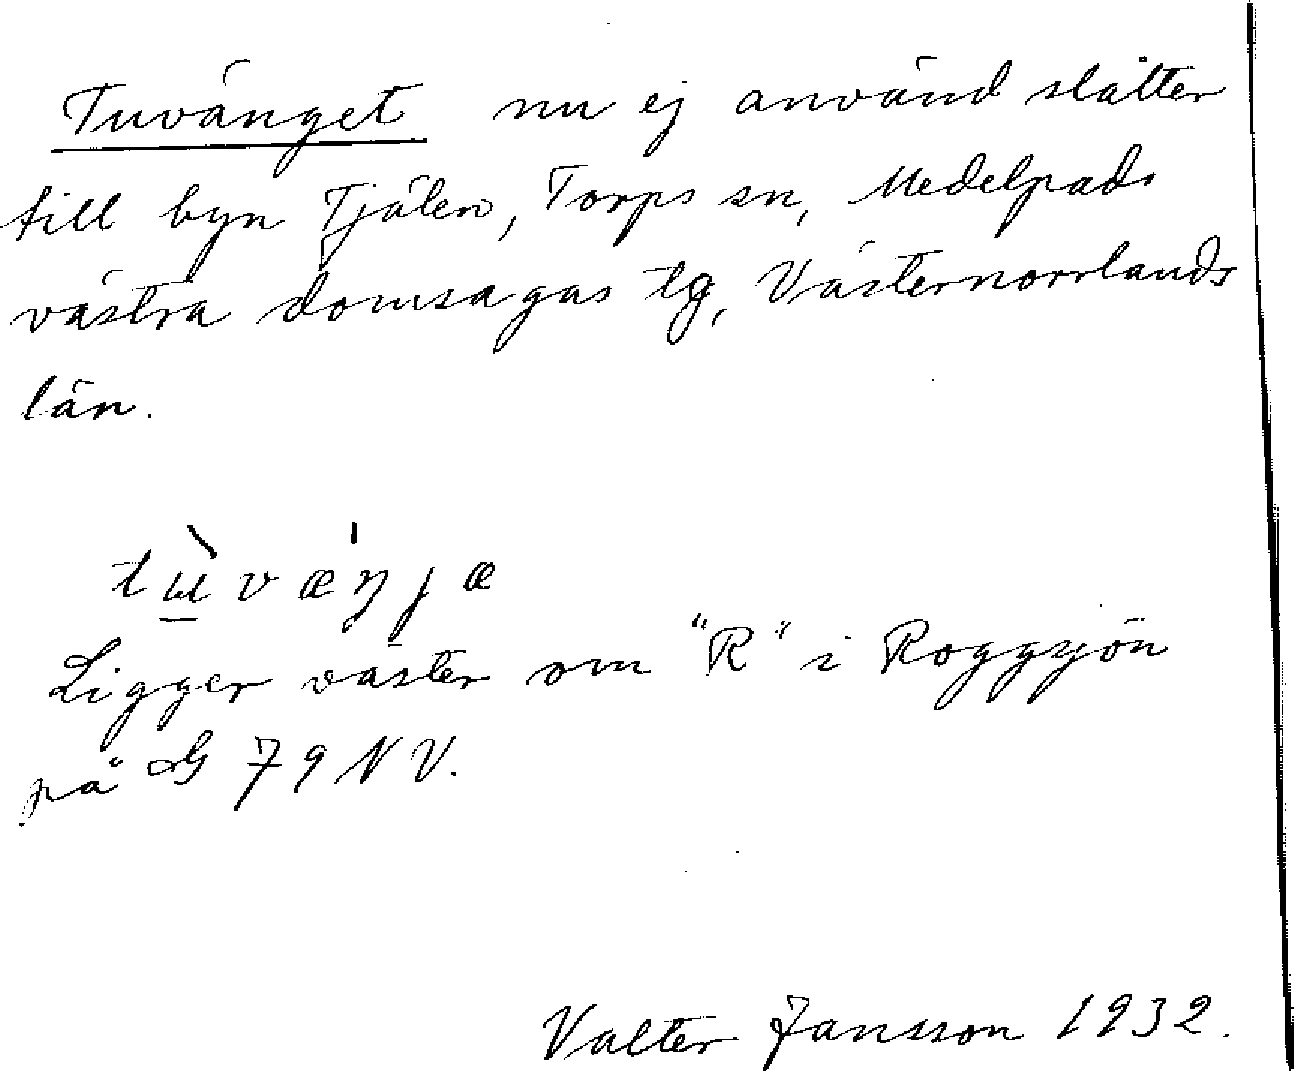 Tuvänget nu ej använd slåtter
till byn Tjälen, Torps sn, Medelpads
västra domsagas tg, Västernorrlands
län.
tù̠væ̍ŋjæ
Ligger väster om "R" i Roggsjön
på G 79 NV.
Valter Jansson 1932.